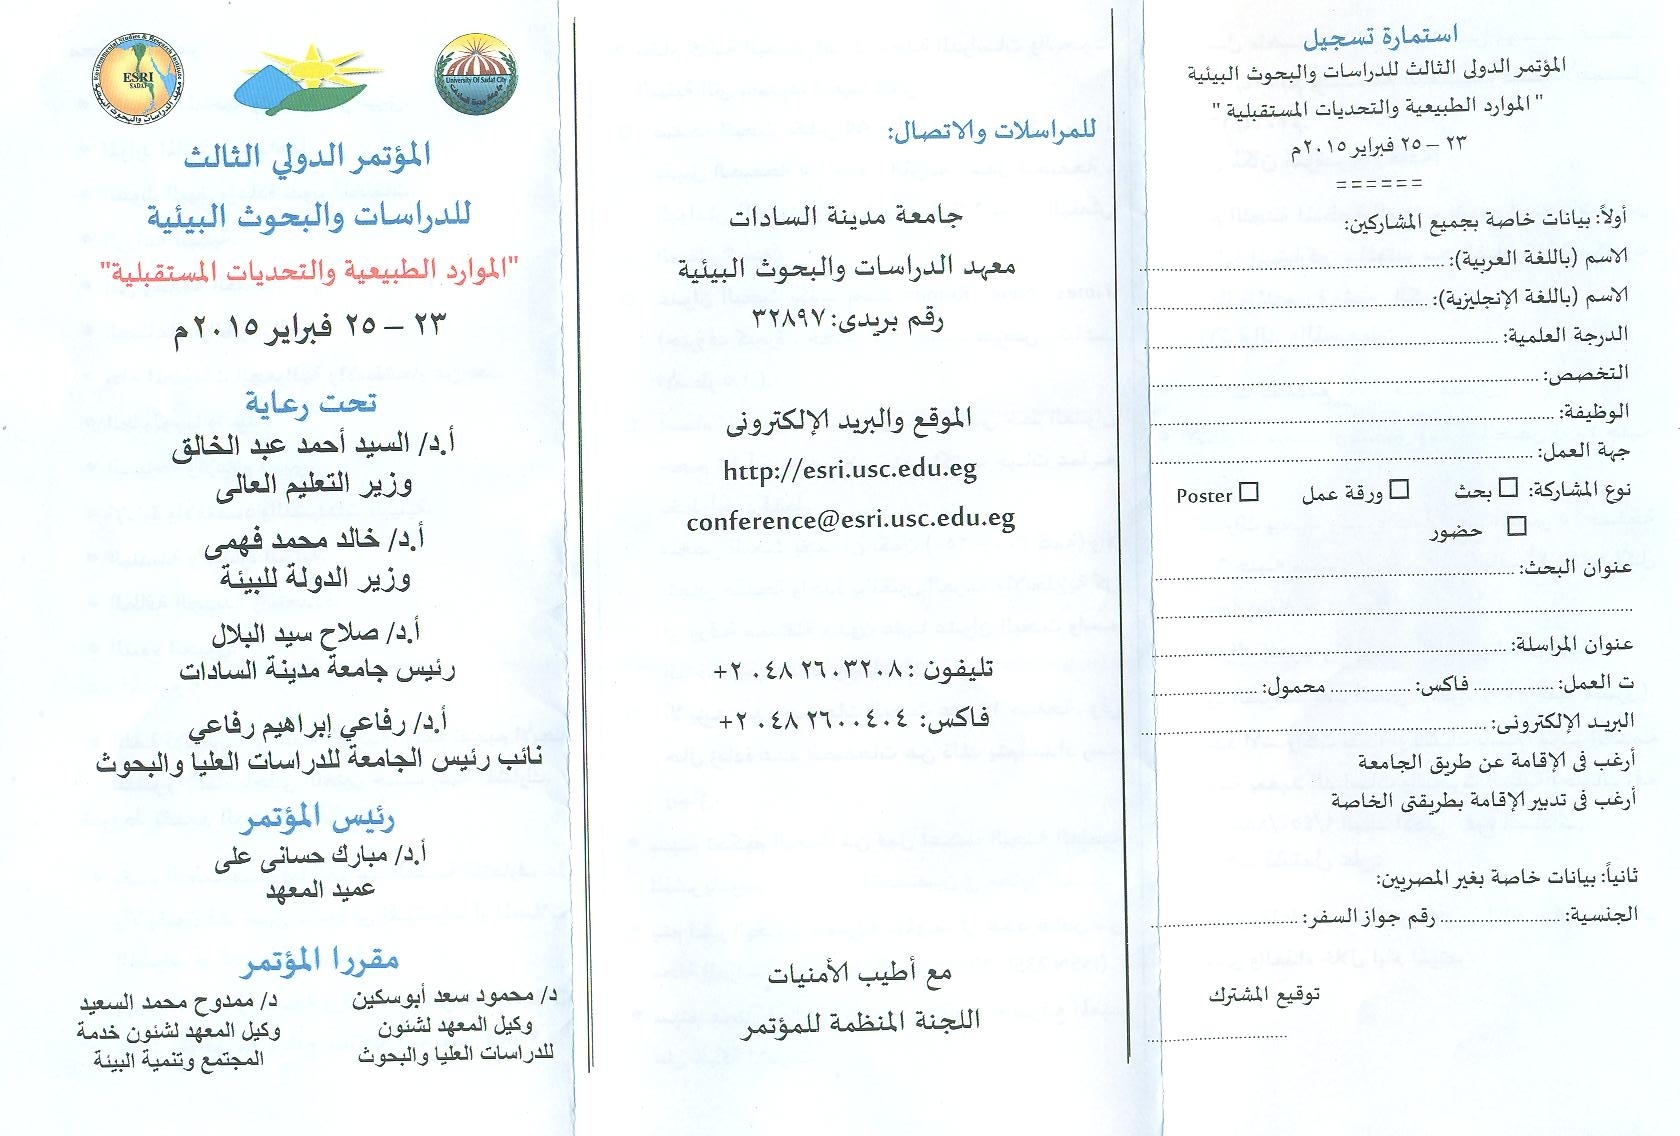 استمارة تسجيل
المؤتمر الدولى الثالث للدراسات والبحوث البيئية
" الموارد الطبيعية والتحديات المستقبلية "
٢٣ – ٢٥ فبراير ٢٠١٥م
======
أولاً: بيانات خاصة بجميع المشاركين:
الاسم (باللغة العربية):
الاسم (باللغة الإنجليزية):
الدرجة العلمية:
التخصص:
الوظيفة:
جهة العمل:
نوع المشاركة: □ بحث □ ورقة عمل □ Poster
□ حضور
عنوان البحث:
عنوان المراسلة:
ت العمل: فاكس: محمول:
البريد الإلكترونى:
أرغب فى الإقامة عن طريق الجامعة
أرغب فى تدبير الإقامة بطريقتى الخاصة
ثانياً: بيانات خاصة بغير المصريين:
الجنسية: رقم جواز السفر:
توقيع المشترك
للمراسلات والاتصال:
جامعة مدينة السادات
معهد الدراسات والبحوث البيئية
رقم بريدى: ٣٢٨٩٧
الموقع والبريد الإلكترونى
http://esri.usc.edu.eg
conference@esri.usc.edu.eg
تليفون : ٢٠٤٨٢٦٠٣٢٠٨+
فاكس: ٢٠٤٨٢٦٠٠٤٠٤+
مع أطيب الأمنيات
اللجنة المنظمة للمؤتمر
Environmental Studies & Research Institute
ESRI
SADAT
معهد الدراسات والبحوث البيئية
University Of Sadat City
جامعة مدينة السادات
المؤتمر الدولي الثالث
للدراسات والبحوث البيئية
"الموارد الطبيعية والتحديات المستقبلية"
٢٣ – ٢٥ فبراير ٢٠١٥م
تحت رعاية
أ.د/ السيد أحمد عبد الخالق
وزير التعليم العالى
أ.د/ خالد محمد فهمى
وزير الدولة للبيئة
أ.د/ صلاح سيد البلال
رئيس جامعة مدينة السادات
أ.د/ رفاعي إبراهيم رفاعي
نائب رئيس الجامعة للدراسات العليا والبحوث
رئيس المؤتمر
أ.د/ مبارك حسانى على
عميد المعهد
مقررا المؤتمر
د/ محمود سعد أبوسكين
وكيل المعهد لشئون
للدراسات العليا والبحوث
د/ ممدوح محمد السعيد
وكيل المعهد لشئون خدمة
المجتمع وتنمية البيئة